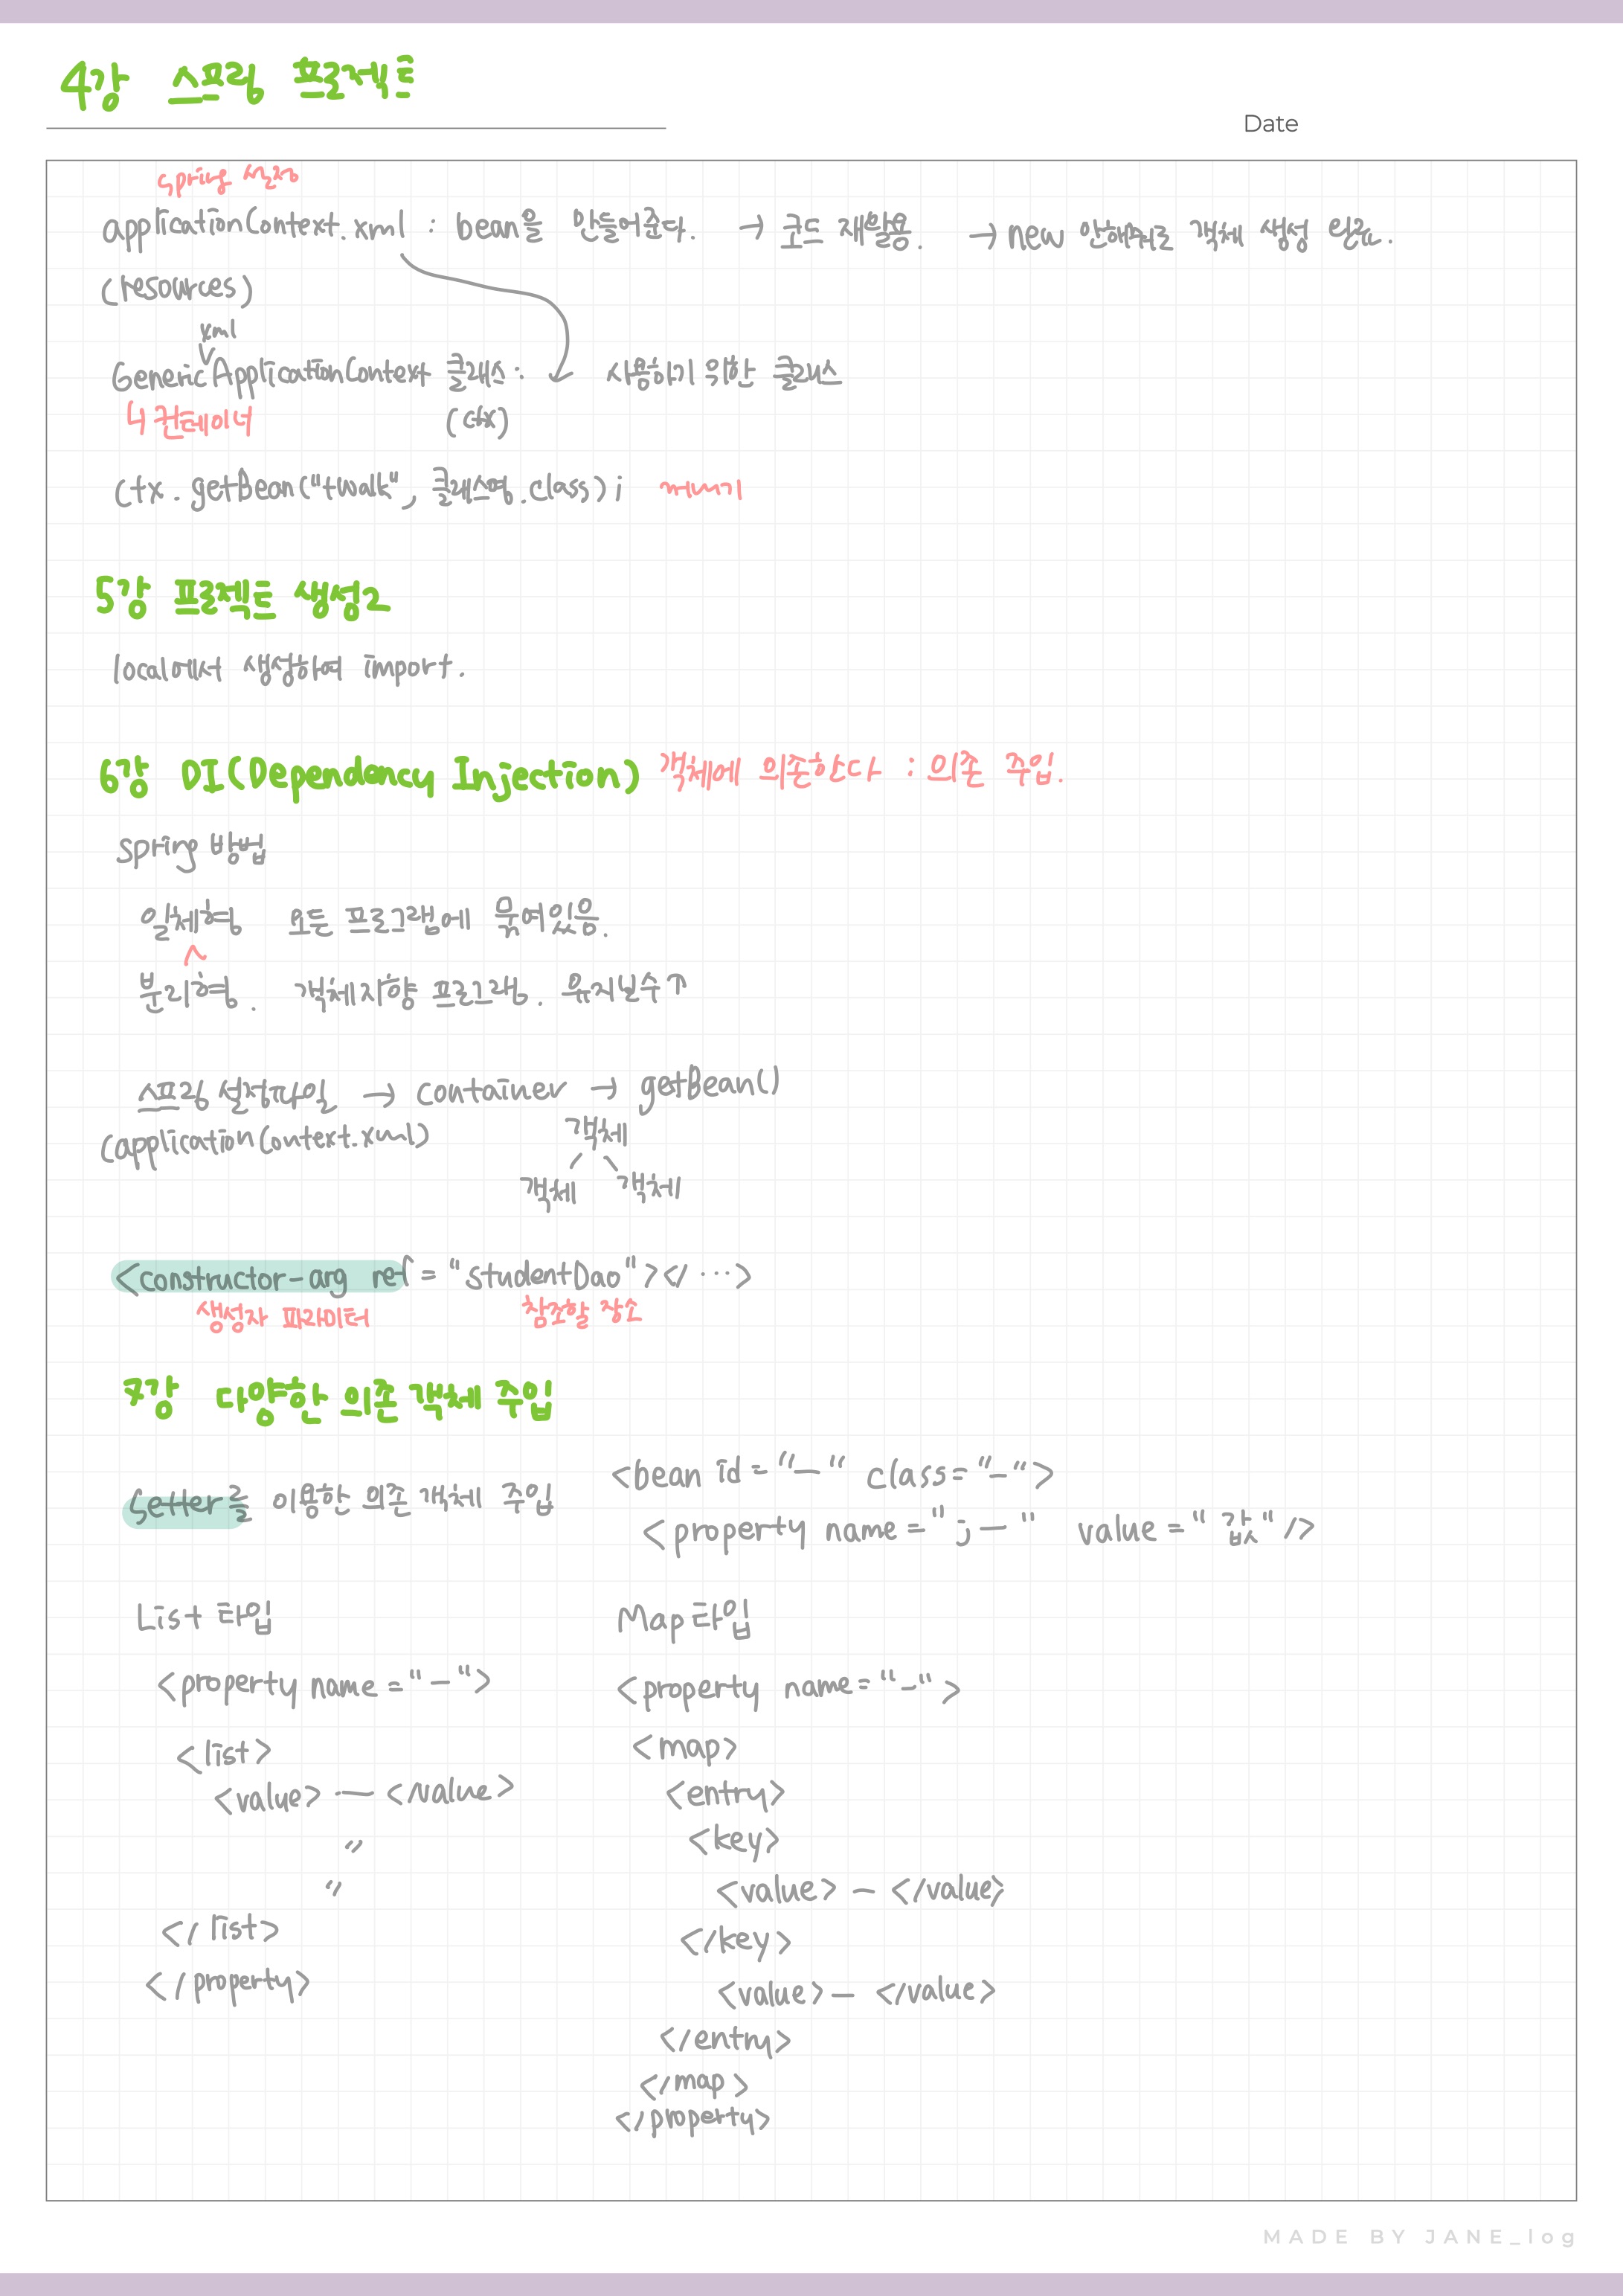 4강 스프링 프로젝트
Date
spring 설정
applicationContext.xml : bean을 만들어준다. → 코드 재활용. → new 안해줘도 객체 생성 완료.
(resources)
xml
GenericApplicationContext 클래스: 사용하기 위한 클래스
ㄴ컨테이너 (ctx)
ctx.getBean("tWalk", 클래스명.class); 꺼내기
5강 프로젝트 생성2
local에서 생성하여 import.
6강 DI(Dependency Injection) 객체에 의존한다 : 의존 주입.
spring 방법
일체형 모든 프로그램에 묶여있음.
^
분리형. 객체지향 프로그램. 유지보수↑
스프링 설정파일 → container → getBean()
(applicationContext.xml) 객체
객체 객체
<constructor-arg ref = "studentDao"></ ...>
생성자 파라미터 참조할 장소
7강 다양한 의존 객체 주입
<bean id="—" class="—">
Setter를 이용한 의존 객체 주입
<property name="j—" value="값"/>
List 타입 Map타입
<property name="—"> <property name="—">
<list> <map>
<value> — </value> <entry>
" <key>
" <value> — </value>
</list> </key>
</property> <value> — </value>
</entry>
</map>
</property>
MADE BY JANE_log